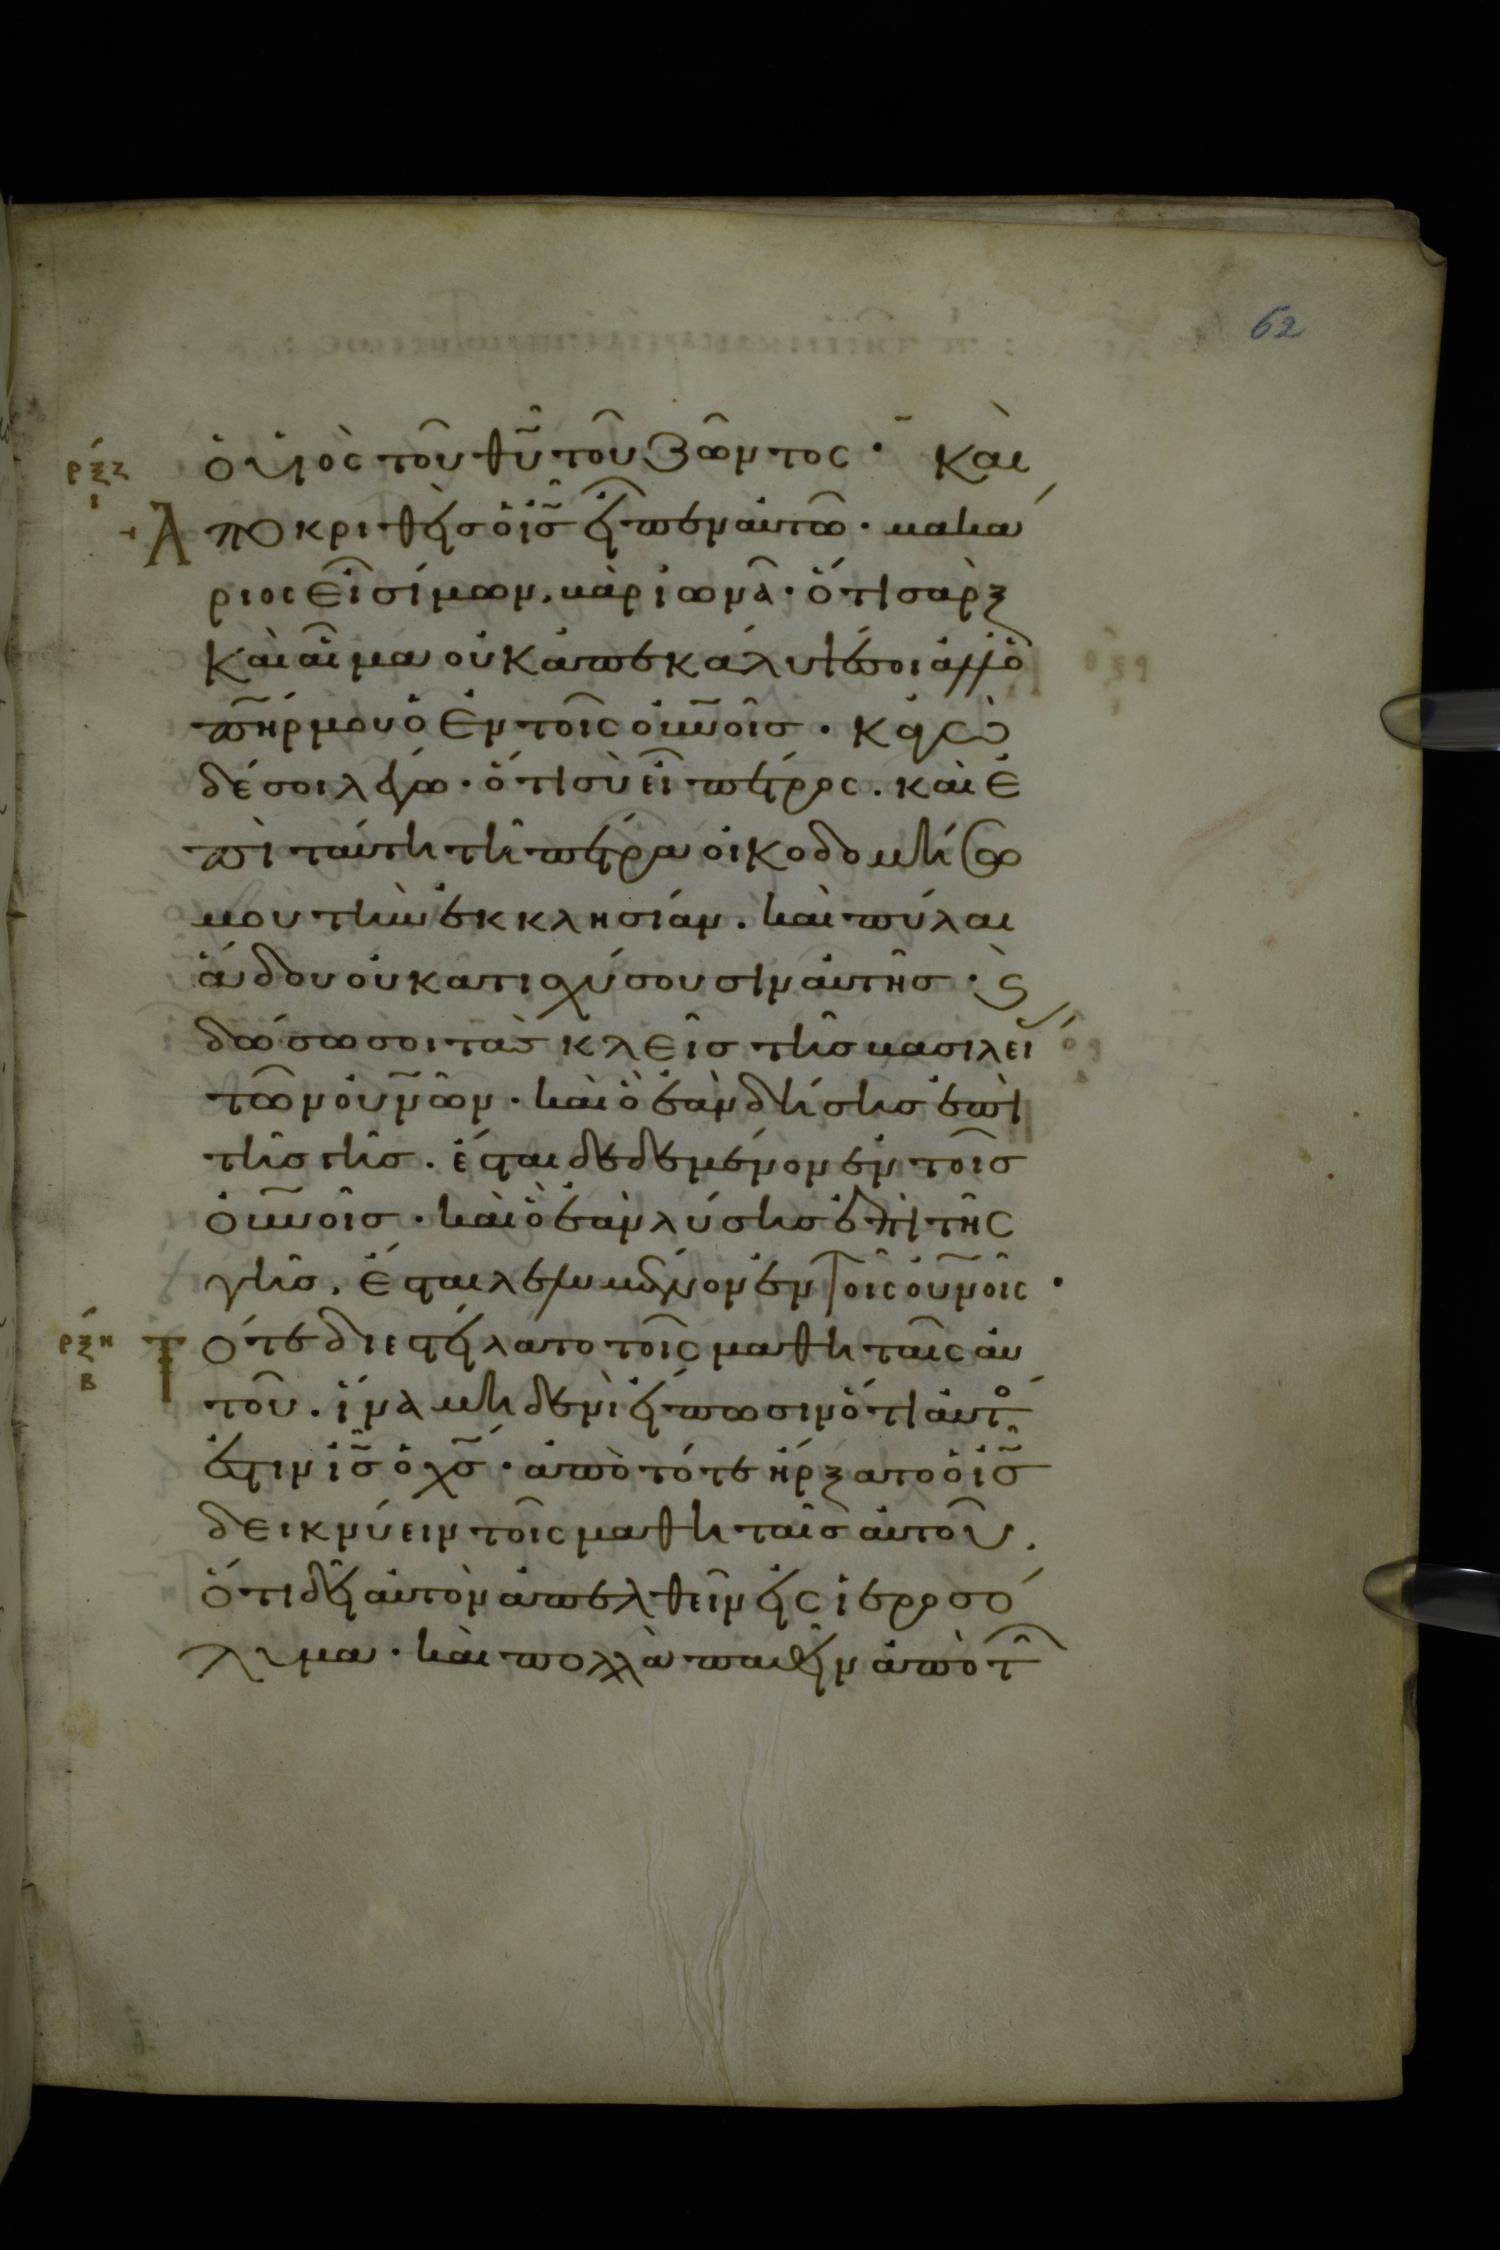 62
ρξζ
ι
ὁ υἱὸς τοῦ θῦ τοῦ ζῶντος · Καὶ
Ἀποκριθεὶς ὁ ις εἶπεν αυτῶ · μακά
ριος εἶ σίμων, βὰρ ἰωνᾶ · ὅτι σὰρξ
καὶ αἷμα οὐκ ἀπεκάλυψέ σοι ἀλλ ὁ
πηρ μου ὁ ἐν τοῖς οὐνοῖς · κἀγὼ
δέ σοι λέγω · ὅτι σὺ εἶ πέτρος . καὶ ἐ
πὶ ταύτη τῆ πέτρα οἰκοδομήσω
μου τὴν ἐκκλησίαν . καὶ πύλαι
ἅδου οὐ κατισχύσουσιν αὐτῆς · ϗ
δώσω σοι τὰς κλεῖς τῆς βασιλεί
τῶν οὐνῶν · καὶ ὃ ἐὰν δήσης ἐπὶ
τῆς γῆς . ἔσται δεδεμένον ἐν τοῖς
οὐνοῖς · καὶ ὃ ἐὰν λύσης ἐπὶ τῆς
γῆς . ἔσται λελυμένον ἐν τοῖς οὐνοῖς ·
ρξη
β
Τότε διεστείλατο τοῖς μαθηταῖς αυ
τοῦ . ἵνα μηδενὶ εἴπωσιν ὅτι αὐτό
ἐστιν ις ὁ χς · ἀπὸ τότε ἤρξατο ὁ ις
δεικνύειν τοῖς μαθηταῖς αὐτοῦ .
ὅτι δεῖ αὐτὸν ἀπελθεῖν εἰς ἱεροσό
λυμα · καὶ πολλὰ παθεῖν ἀπὸ τ